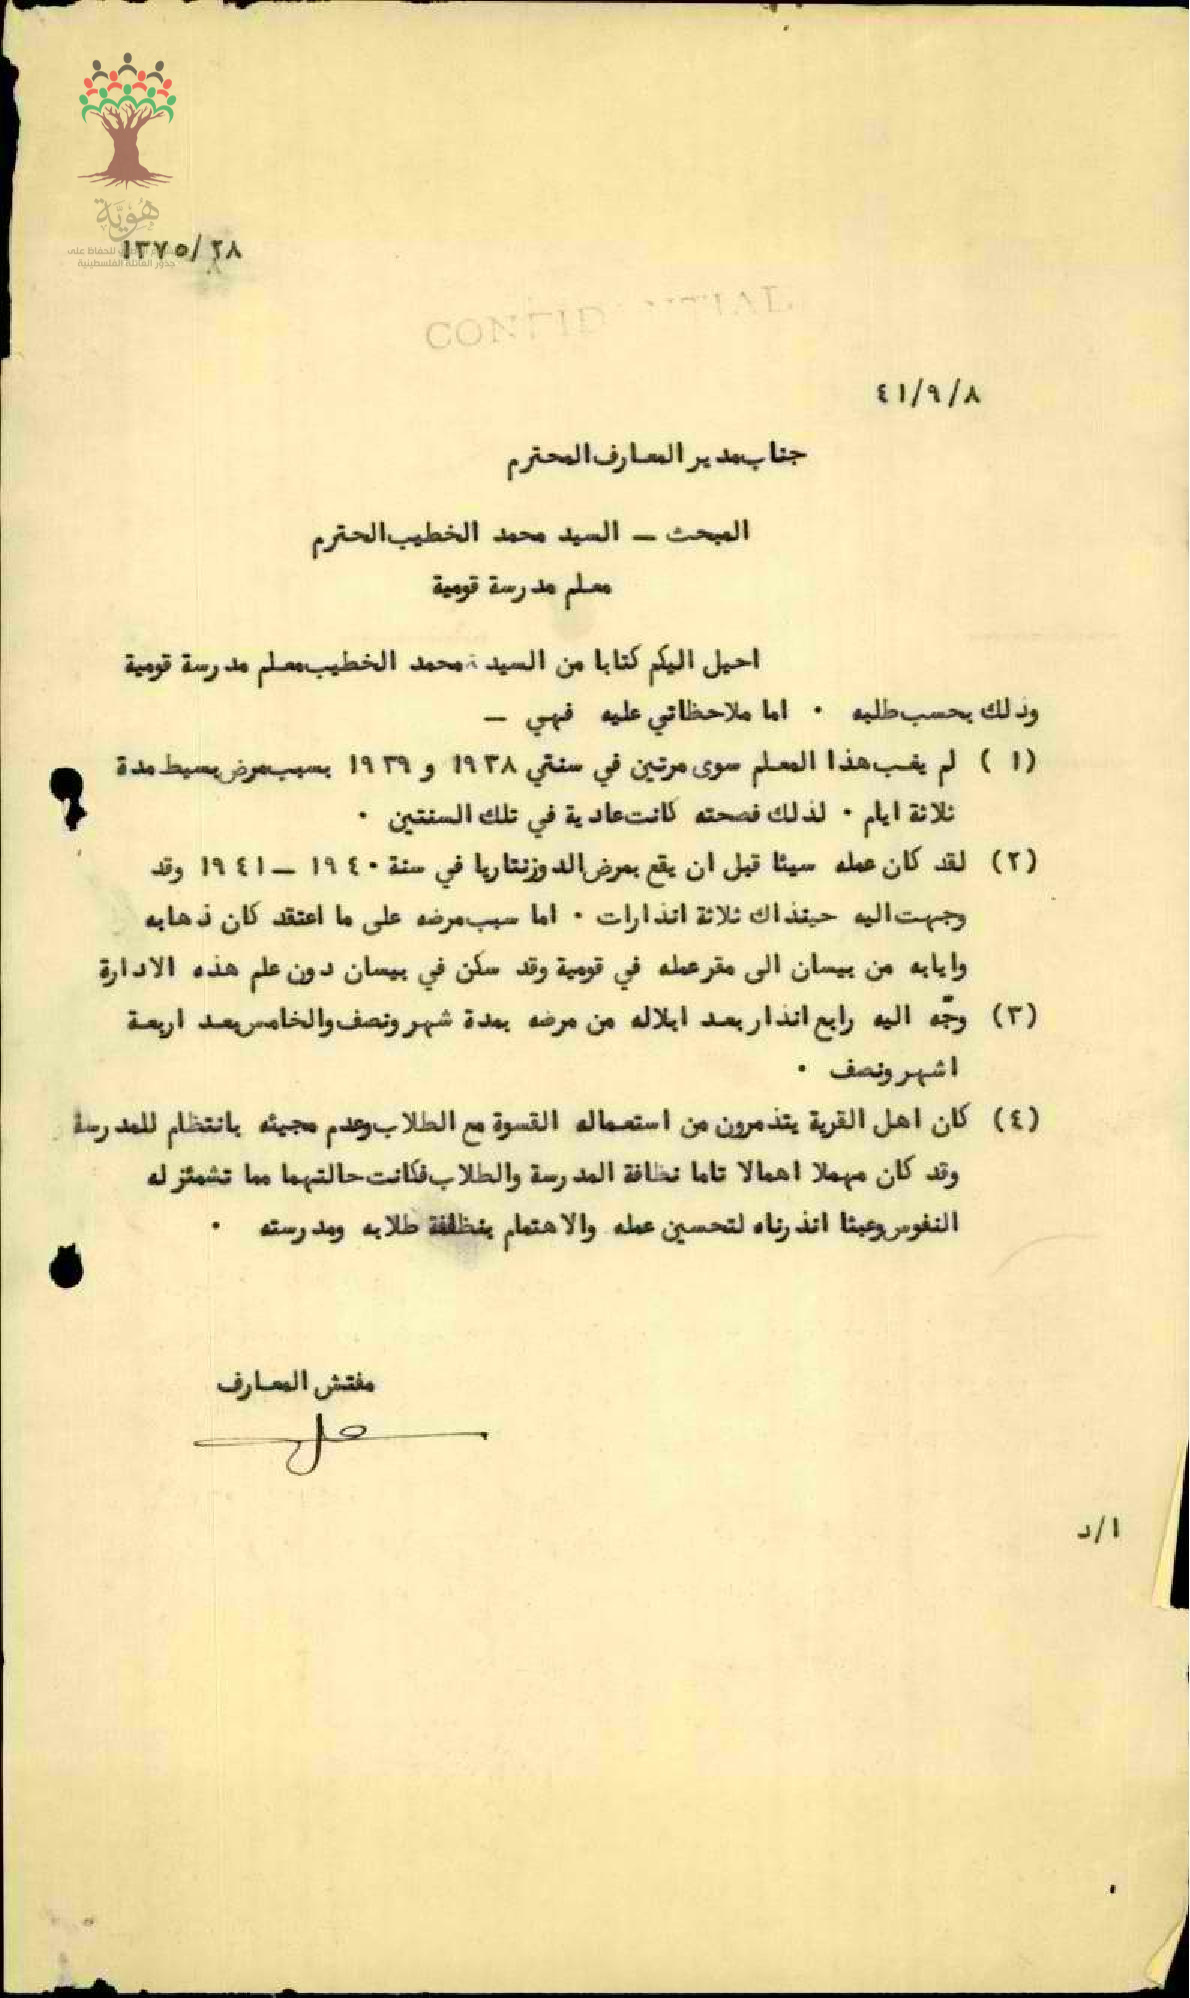 هُوِيَّة
للحفاظ على
جذور العائلة الفلسطينية
١٣٧٥/٢٨
CONFIDENTIAL
٤١/٩/٨
جناب مدير المعارف المحترم
المبحث — السيد محمد الخطيب الحترم
معلم مدرسة قومية
احيل اليكم كتابا من السيد محمد الخطيب معلم مدرسة قومية
وذلك بحسب طلبه ٠ اما ملاحظاتي عليه فهي —
(١) لم يغب هذا المعلم سوى مرتين في سنتي ١٩٣٨ و ١٩٣٩ بسبب مرض بسيط مدة
ثلاثة ايام ٠ لذلك فصحته كانت عادية في تلك السنتين ٠
(٢) لقد كان عمله سيئا قبل ان يقع بمرض الدوزنتاريا في سنة ١٩٤٠ — ١٩٤١ وقد
وجهت اليه حينذاك ثلاثة انذارات ٠ اما سبب مرضه على ما اعتقد كان ذهابه
وايابه من بيسان الى مقر عمله في قومية وقد سكن في بيسان دون علم هذه الادارة
(٣) وجّه اليه رابع انذار بعد ابلاله من مرضه بمدة شهر ونصف والخامس بعد اربعة
اشهر ونصف ٠
(٤) كان اهل القرية يتذمرون من استعماله القسوة مع الطلاب وعدم مجيئه بانتظام للمدرسة
وقد كان مهملا اهمالا تاما نظافة المدرسة والطلاب فكانت حالتهما مما تشمئز له
النفوس وعبثا انذرناه لتحسين عمله والاهتمام بنظافة طلابه ومدرسته ٠
مفتش المعارف
ا/د